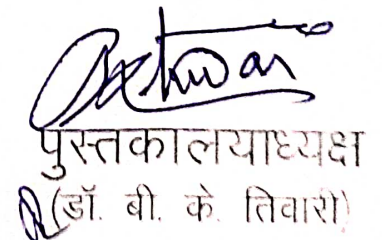 पुस्तकालयाध्यक्ष
(डॉ. बी. के. तिवारी)